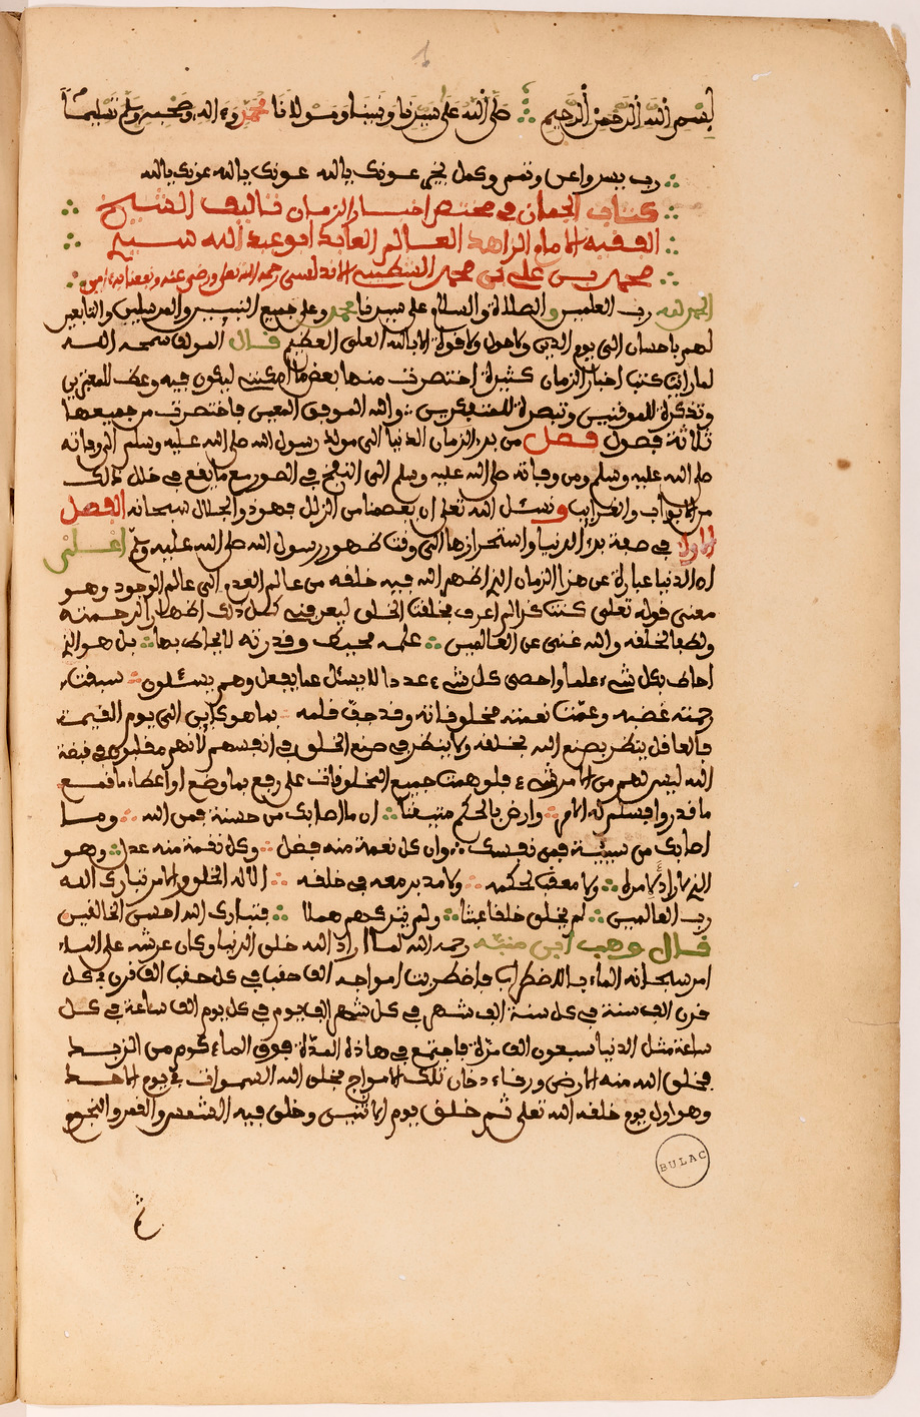 بسم الله الرحمن الرحيم صلى الله على سيدنا ونبينا ومولانا محمد وءاله وصحبه وسلم تسليما
رب يسر واعن وتمم وكمل بخير عونك يالله عونك يالله عونك يالله
كتاب الجمان في مختصر اخبار الزمان تاليف الشيخ
الفقيه الامام الزاهد العالم العابد ابو عبد الله سيدي
محمد بن علي بن محمد الشطيبي الاندلسي رحمه الله تعلى ورضي عنه ونفعنا به ءامين
الحمد لله رب العلمين والصلاة والسلام على سيدنا محمد وعلى جميع النبيين والمرسلين والتابعين
لهم باحسان الى يوم الدين ولا حول ولا قوة الا بالله العلي العظيم قال المولف سمحه الله
لما رايت كتب اخبار الزمان كثيرة اختصرت منها بعض ما امكنني ليكون فيه وعظ للمعتبرين
وتذكرة للموقنين وتبصرة للمتفكرين والله الموفق المعين فاختصرت من جميعها
ثلاثة فصول فصل من بدء الزمان الدنيا الى مولد رسول الله صلى الله عليه وسلم الى وفاته
صلى الله عليه وسلم ومن وفاته صلى الله عليه وسلم الى النفخ في الصور مع ما يقع في خلال ذالك
من العجائب والغرايب ونسئل الله تعلى ان يعصمنا من الزلل فهو ذو الجلال سبحانه الفصل
الاول في صفة بدء الدنيا واستحرازها الى وقت ظهور رسول الله صلى الله عليه وسلم اعلم
ان الدنيا عبارة عن هذا الزمان الذي اظهر الله فيه خلقه من عالم العدم الى عالم الوجود وهو
معنى قوله تعلى كنت كنزا لم اعرف فخلقت الخلق ليعرفني كل ذلك اظهارا لرحمته
ولطفا لخلقه والله غني عن العالمين علمه محيط وقدرته لا يحاط بها بل هو الذي
احاط بكل شيء علما واحصى كل شيء عددا لا يسئل عما يفعل وهم يسئلون سبقت
رحمته غضبه وعمت نعمته مخلوقاته وقد جف قلمه بما هو كاين الى يوم القيمة
فالعاقل ينظر بصنع الله بخلقه ولا ينظر في صنع الخلق في انفسهم لانهم مقلبون في قبضة
الله ليس لهم من الامر شيء فلو همت جميع المخلوقات على رفع بما وضع او اعطاء ما منع
ما قدروا فسلم له الامر وارض بالحكم متيقنا ان ما اصابك من حسنة فمن الله وما
اصابك من سيئة فمن نفسك وان كل نعمة منه فضل وكل نقمة منه عدل وهو
الذي لا راد لامره ولا معقب لحكمه ولا مدبر معه في خلقه الا له الخلق والامر تبارك الله
رب العالمين لم يخلق خلقا عبثا ولم يتركهم هملا فتبارك الله احسن الخالقين
قال وهب ابن منبه رحمه الله لما اراد الله خلق الدنيا وكان عرشه على الماء
امر سبحانه الماء بالاضطراب فاضطربت امواجه الف حقبا في كل حقب الف قرن في كل
قرن الف سنة في كل سنة الف شهر في كل شهر الف يوم في كل يوم الف ساعة في كل
ساعة مثل الدنيا سبعون الف مرة فاجتمع في هاذه المدة فوق الماء كوم من الزبد
فخلق الله منه الارض ورفاء دخان تلك الامواج فخلق الله السموات في يوم الاحد
وهو اول يوم خلقه الله تعلى ثم خلق يوم الاثنين وخلق فيه الشمس والقمر والنجوم
BULAC